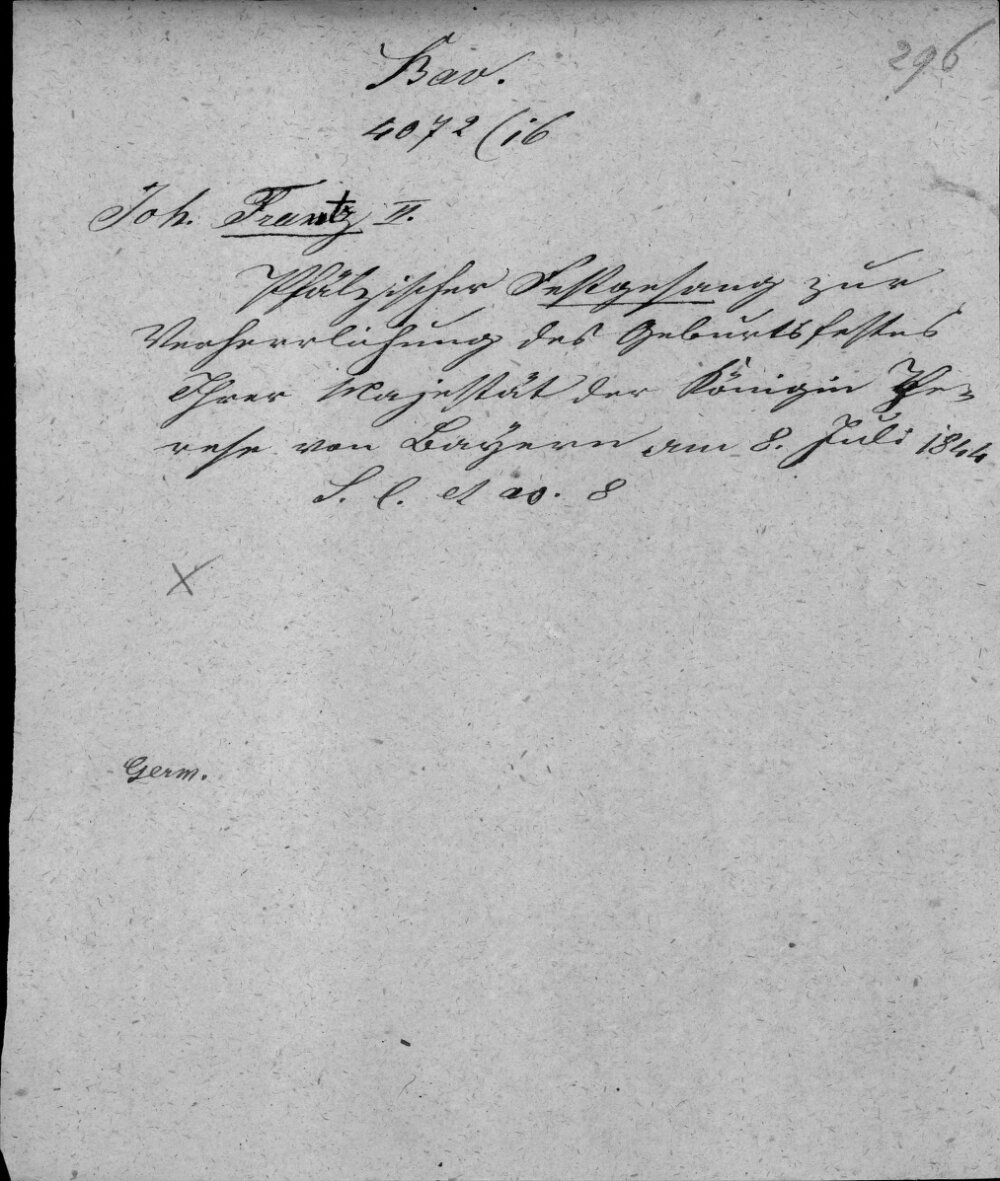 296
Bav.
4072 (16
Joh. Frantz II.
Pfälzischer Festgesang zur
Verherrlichung des Geburtsfestes
Ihrer Majestät der Königin The-
rese von Bayern am 8. Juli 1844
S. l. et ao. 8
X
Germ.